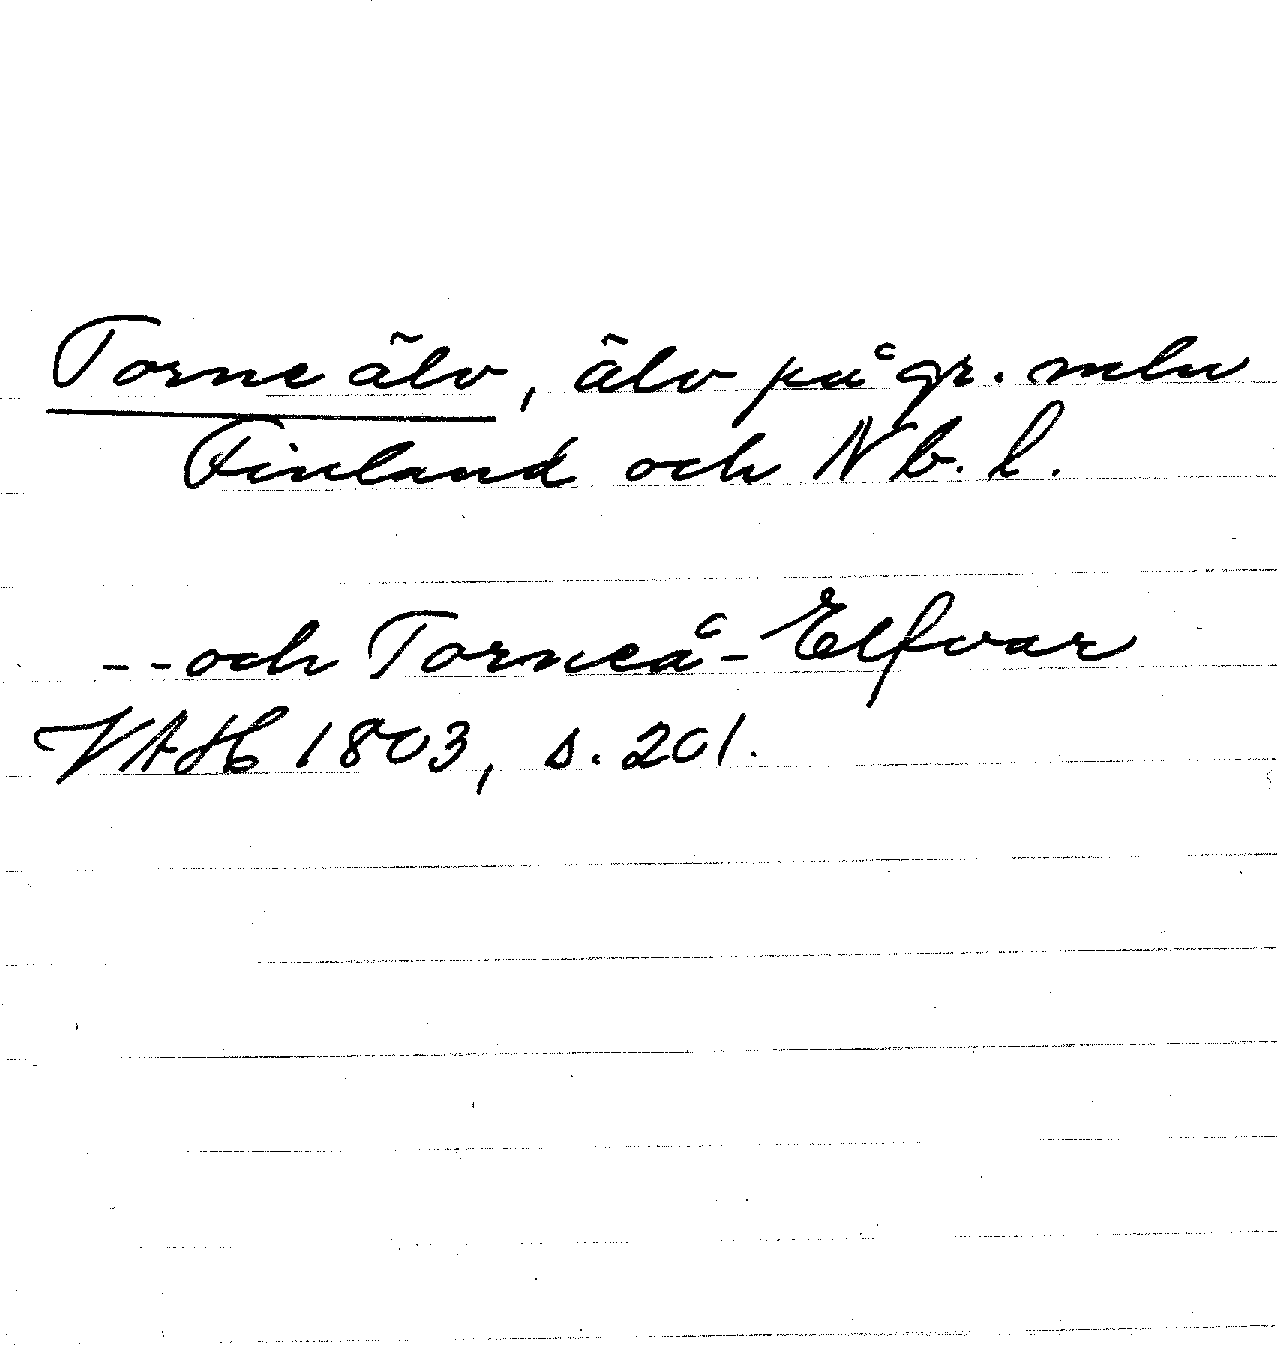 Torne älv, älv på gr. mln
Finland och Nb. l.
--och Torneå-Elfvar
VAH 1803, s. 201.